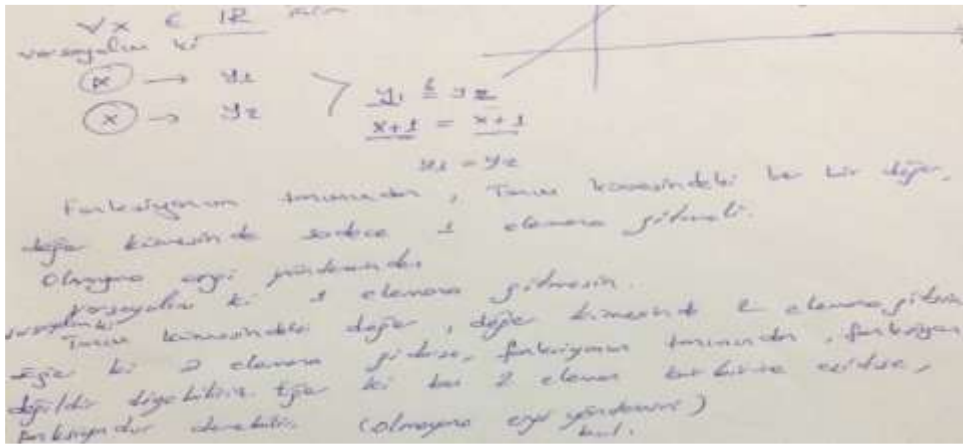 ∀x ∈ IR için
varsayalım ki
x → y1
x → y2
y1 = y2
x+1 = x+1
y1 = y2
Fonksiyonun tanımından, Tanım kümesindeki her bir değer,
değer kümesinde sadece 1 elemana gitmeli.
Olmayana ergi yönteminden
varsayalım ki 1 elemana gitmesin.
varsayalım ki
Tanım kümesindeki değer, değer kümesinde 2 elemana gitsin
Eğer ki 2 elemana giderse, fonksiyonun tanımından, fonksiyon
değildir diyebiliriz. Eğer ki bu 2 eleman birbirine eşitse,
fonksiyondur denebilir. (Olmayana ergi yöntemini)
kul.